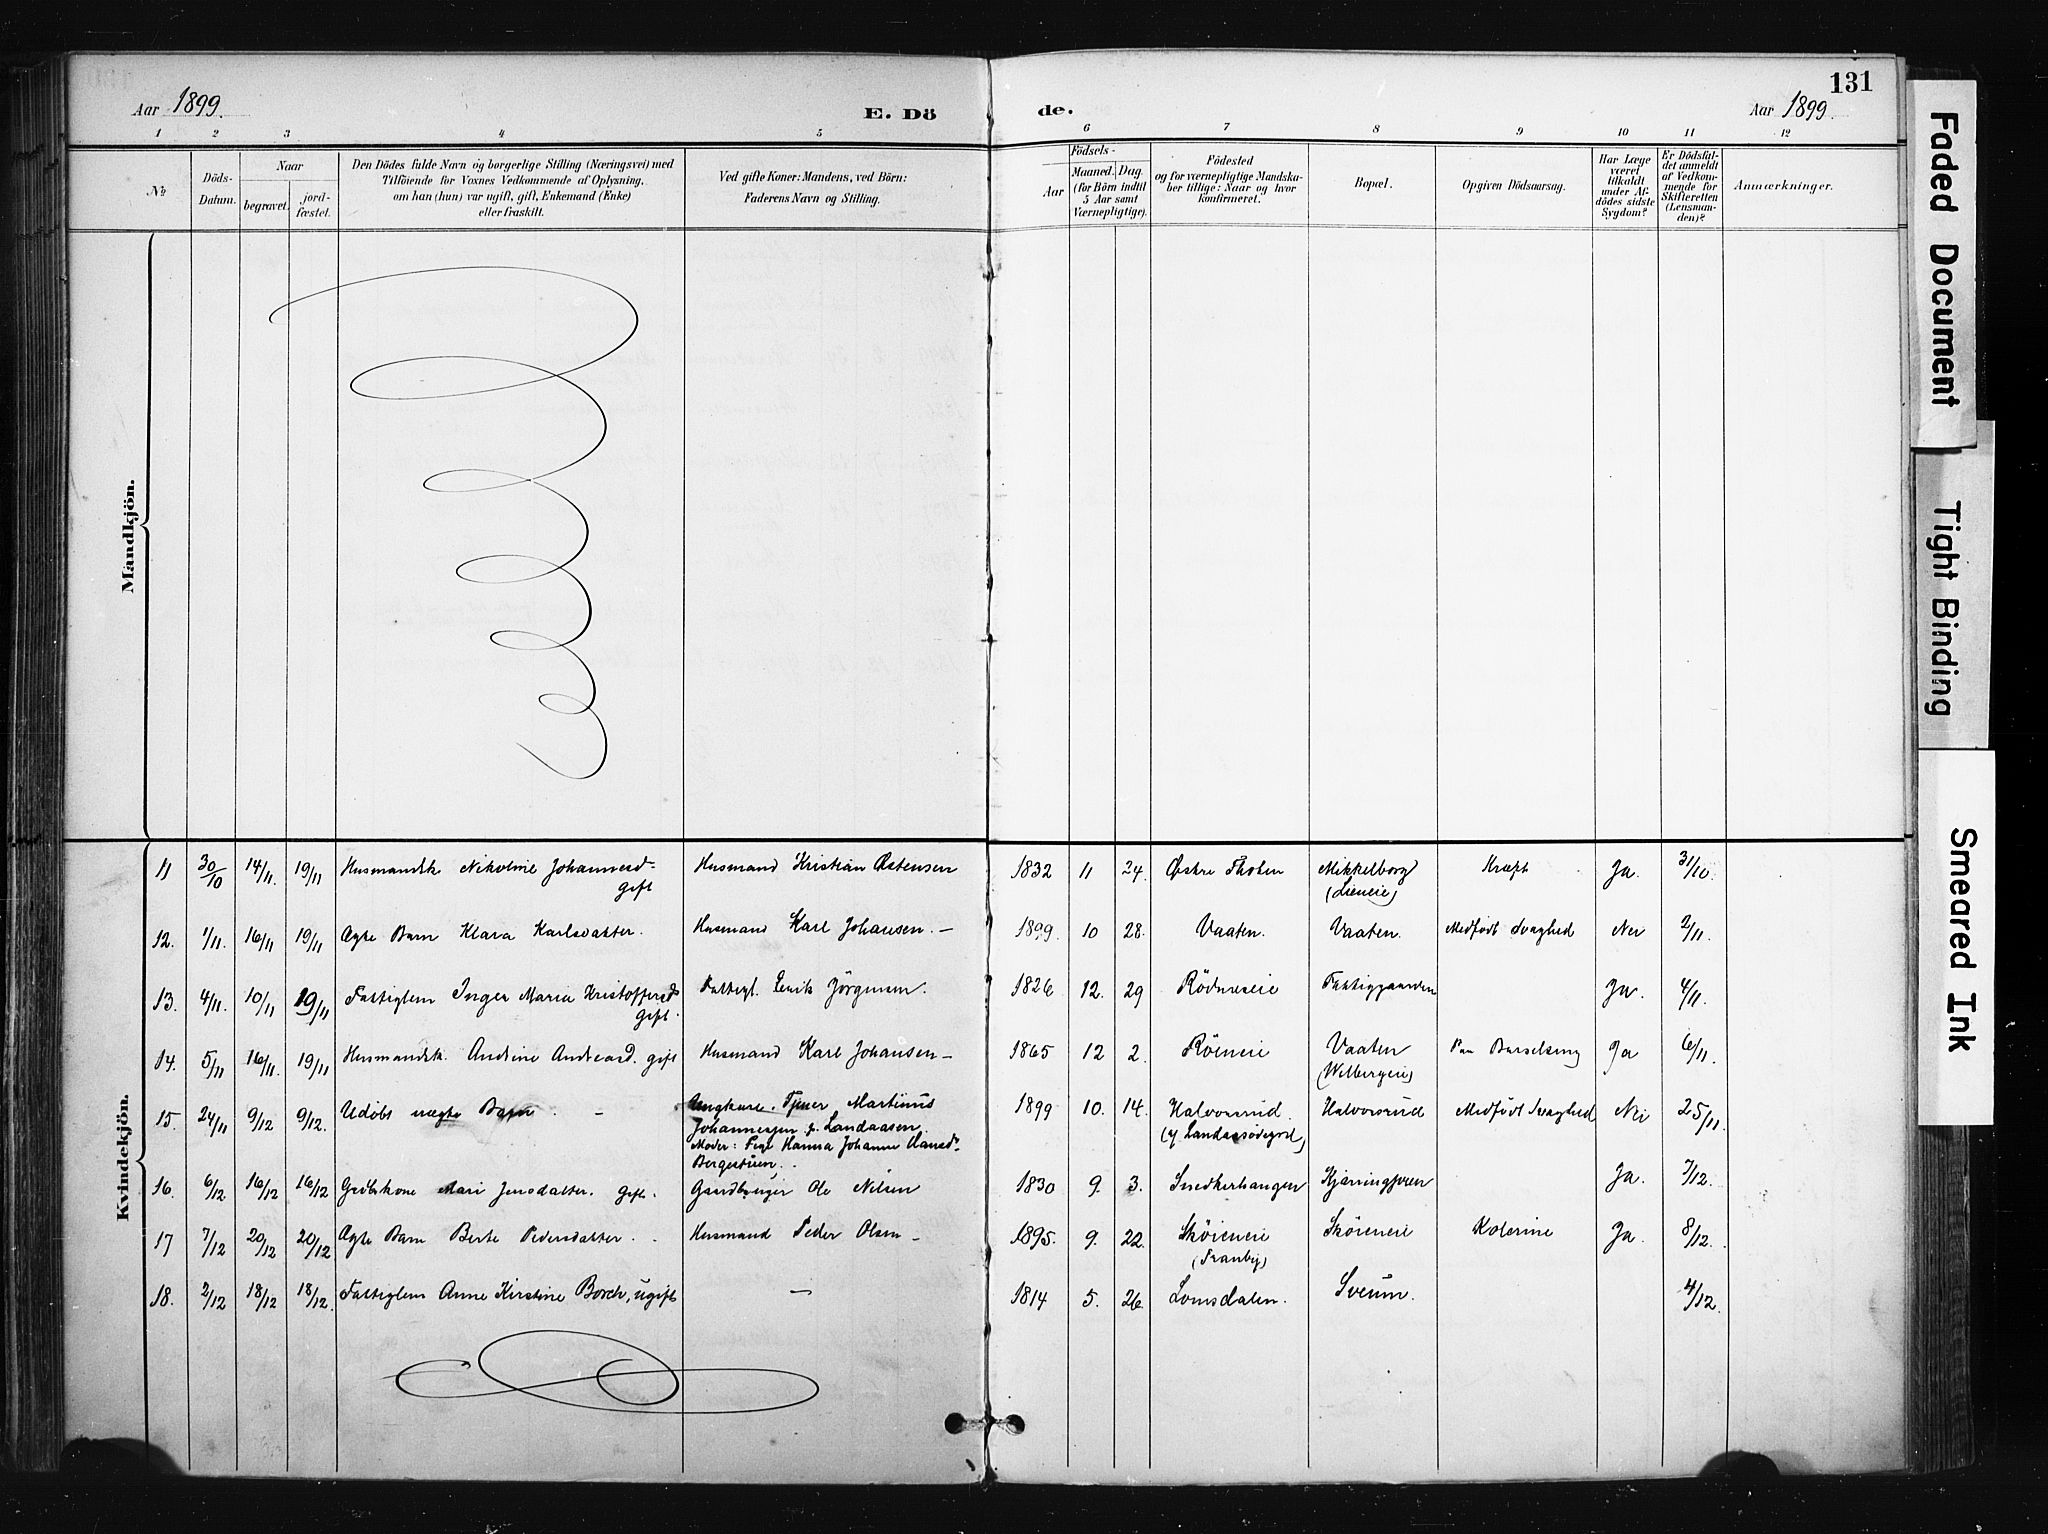 Aar 1899.
E. Dö
de.
Aar 1899.
131
1 2 3 4 5 6 7 8 9 10 11 12
No
Döds-
Datum.
Naar
begravet.
jord-
fæstet.
Den Dödes fulde Navn og borgerlige Stilling (Næringsvei) med
Tilföiende for Voxnes Vedkommende af Oplysning,
om han (hun) var ugift, gift, Enkemand (Enke)
eller fraskilt.
Ved gifte Koner: Mandens, ved Börn:
Faderens Navn og Stilling.
Födsels-
Aar
Maaned. Dag.
(for Börn indtil
5 Aar samt
Værnepligtige).
Födested
og for værnepligtige Mandska-
ber tillige: Naar og hvor
konfirmeret.
Bopæl.
Opgiven Dödsaarsag.
Har Læge
været
tilkaldt
under Af-
dödes sidste
Sygdom?
Er Dödsfal-
det anmeldt
af Vedkom-
mende for
Skifteretten
(Lensman-
den)?
Anmærkninger.
Mandkjön.
Kvindekjön.
11 30/10 14/11. 19/11 Husmandsk Nikoline Johannesd- Husmand Kristian Østensen 1832 11 24. Østre Thoten Mikkelborg Kræft Ja. 31/10.
gift (Lieneie)
12. 1/11. 16/11 19/11 Ægte Barn Klara Karlsdatter. Husmand Karl Johansen. — 1899. 10 28. Vaaten. Vaaten. Medfödt Svaghed Nei 2/11.
13. 4/11. 10/11 19/11 Fattiglem Inger Maria Kristoffersd Fattigl. Erik Jörgensen. 1826 12. 29 Fattiggaarden Ja. 4/11.
gift.
14. 5/11 16/11. 19/11 Husmandsk. Andrine Andreasd. gift Husmand Karl Johansen — 1865 12 2. Röineie Vaaten Paa Barselseng Ja 6/11.
15. 24/11 9/12 9/12. Udöbt uægte Barn. — Ungkarl. Tjener Martinus 1899 10. 14. Halvorsrud. Halvorsrud Medfödt Svaghed Nei 25/11.
Johannessen f. Landaasen.
Moder: Pige Hanna Johanne Hansd.
16. 6/12 16/12 16/12 Gaardbruger Ole Nilsen 1830 9. 3. Snedkerhangen Ja. 7/12.
Mari Jensdatter. gift.
17 7/12 20/12 20/12 Ægte Barn Berte Pedersdatter. Husmand Peder Olsen — 1895. 9. 22. Sköieneie Sköieneie Kolerine Ja. 8/12.
(Franby)
18. 2/12 18/12 18/12. Fattiglem Anne Kirstine Borch, ugift — 1814 5. 26. Lomsdalen. Sveum. 4/12.
Faded Document
Tight Binding
Smeared Ink